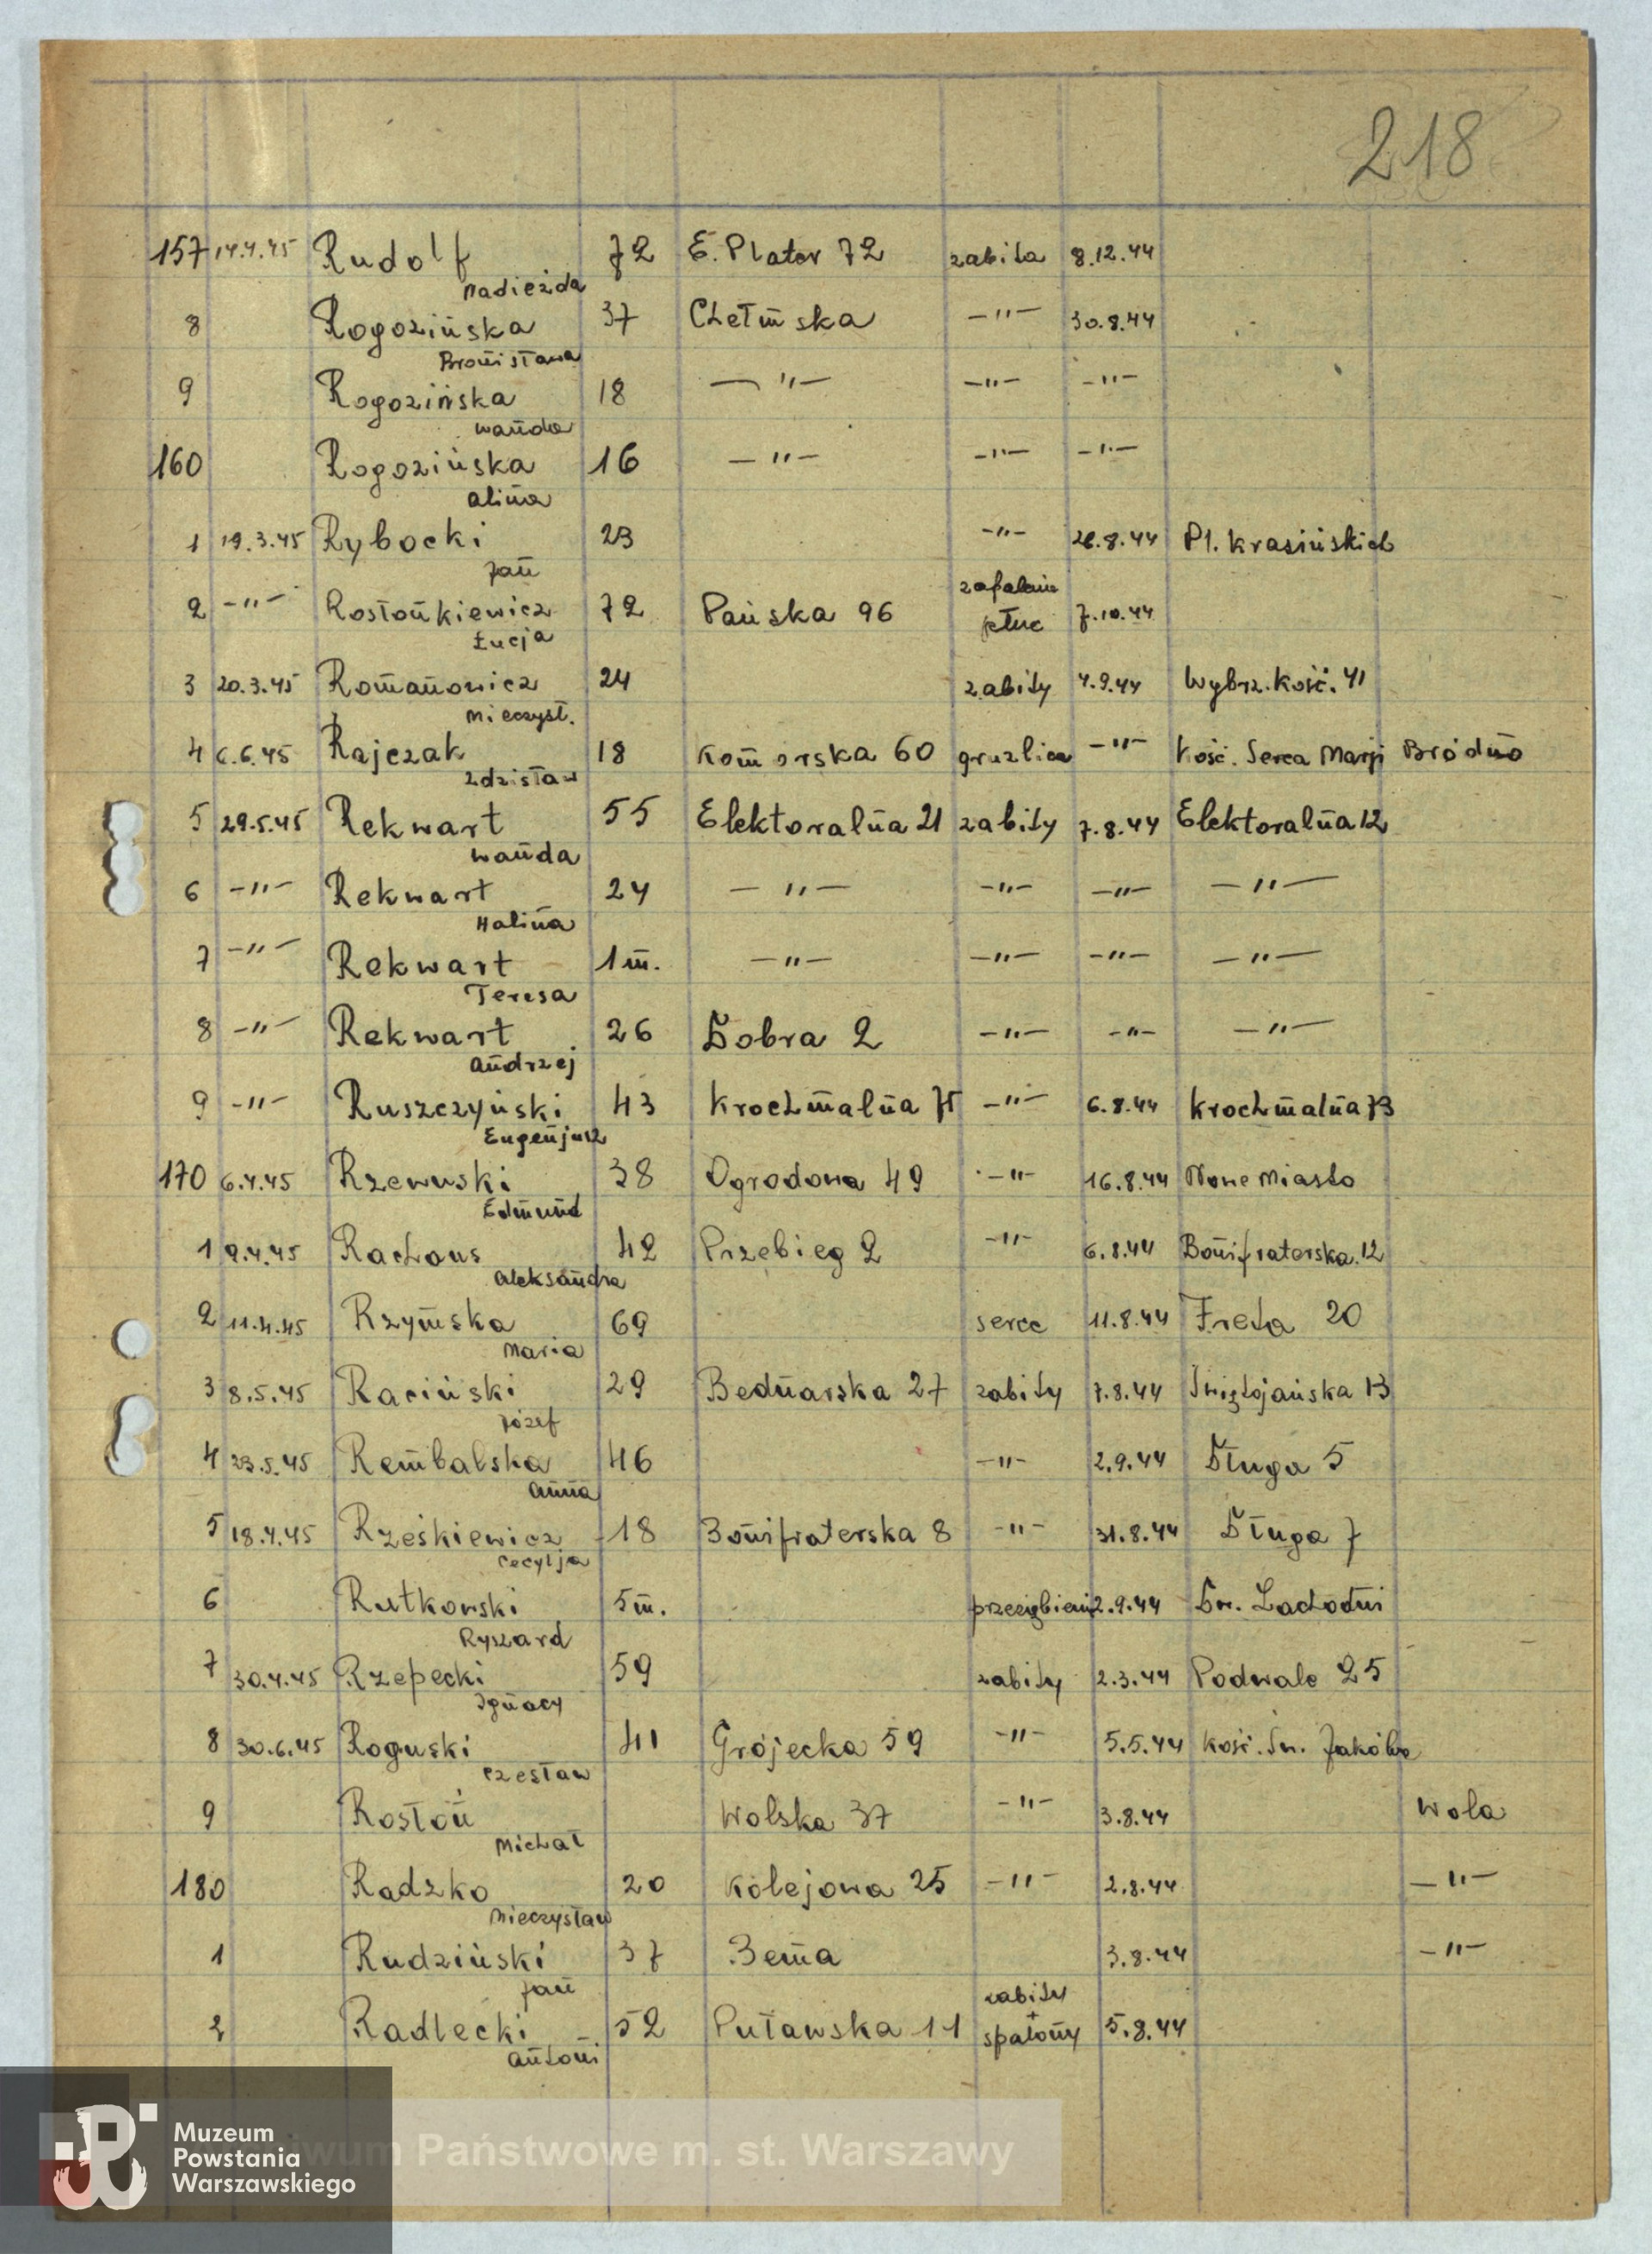 218
157 14.4.45 Rudolf 72 E. Plater 72 zabita 8.12.44
Nadieżda
8 Rogozińska 37 Chełmska —"— 30.8.44
Bronisława
9 Rogozińska 18 —"— —"— —"—
Wanda
160 Rogozińska 16 —"— —"— —"—
Alina
1 19.3.45 Rybocki 23 —"— 26.8.44 Pl. Krasińskich
Jan
2 —"— Rostońkiewicz 72 Pańska 96 zapalenie płuc 7.10.44
Łucja
3 20.3.45 Romanowicz 24 zabity 4.9.44 Wybrz. Kość. 41
Mieczysł.
4 6.6.45 Rajczak 18 Komorska 60 gruźlica —"— Kość. Serca Marji Bródno
Zdzisław
5 29.5.45 Rekwart 55 Elektoralna 21 zabity 7.8.44 Elektoralna 12
Wanda
6 —"— Rekwart 24 —"— —"— —"— —"—
Halina
7 —"— Rekwart 1 m. —"— —"— —"— —"—
Teresa
8 —"— Rekwart 26 Dobra 2 —"— —"— —"—
Andrzej
9 —"— Ruszczyński 43 Krochmalna 75 —"— 6.8.44 Krochmalna 73
Eugenjusz
170 6.4.45 Rzewuski 38 Ogrodowa 49 —"— 16.8.44 Nowe Miasto
Edmund
1 9.4.45 Rachaus 42 Przebieg 2 —"— 6.8.44 Bonifraterska 12
Aleksandra
2 11.4.45 Rzymska 69 serce 11.8.44 Freta 20
Maria
3 8.5.45 Raciński 29 Bednarska 27 zabity 7.8.44 Świętojańska 13
Józef
4 23.5.45 Rembalska 46 —"— 2.9.44 Długa 5
Anna
5 18.4.45 Rześkiewicz 18 Bonifraterska 8 —"— 31.8.44 Długa 7
Cecylja
6 Rutkowski 5 m. 2.9.44 Dw. Zachodni
Ryszard
7 30.4.45 Rzepecki 59 zabity 2.3.44 Podwale 25
Ignacy
8 30.6.45 Roguski 41 Grójecka 59 —"— 5.5.44 Kość. Św. Jakóba
Czesław
9 Rostoń Wolska 37 —"— 3.8.44 Wola
Michał
180 Radzko 20 Kolejowa 25 —"— 2.8.44 —"—
Mieczysław
1 Rudziński 37 Bema 3.8.44 —"—
Jan
2 Radlecki 52 Puławska 11 zabity + spalony 5.8.44
Antoni
Muzeum
Powstania
Warszawskiego
iwum Państwowe m. st. Warszawy